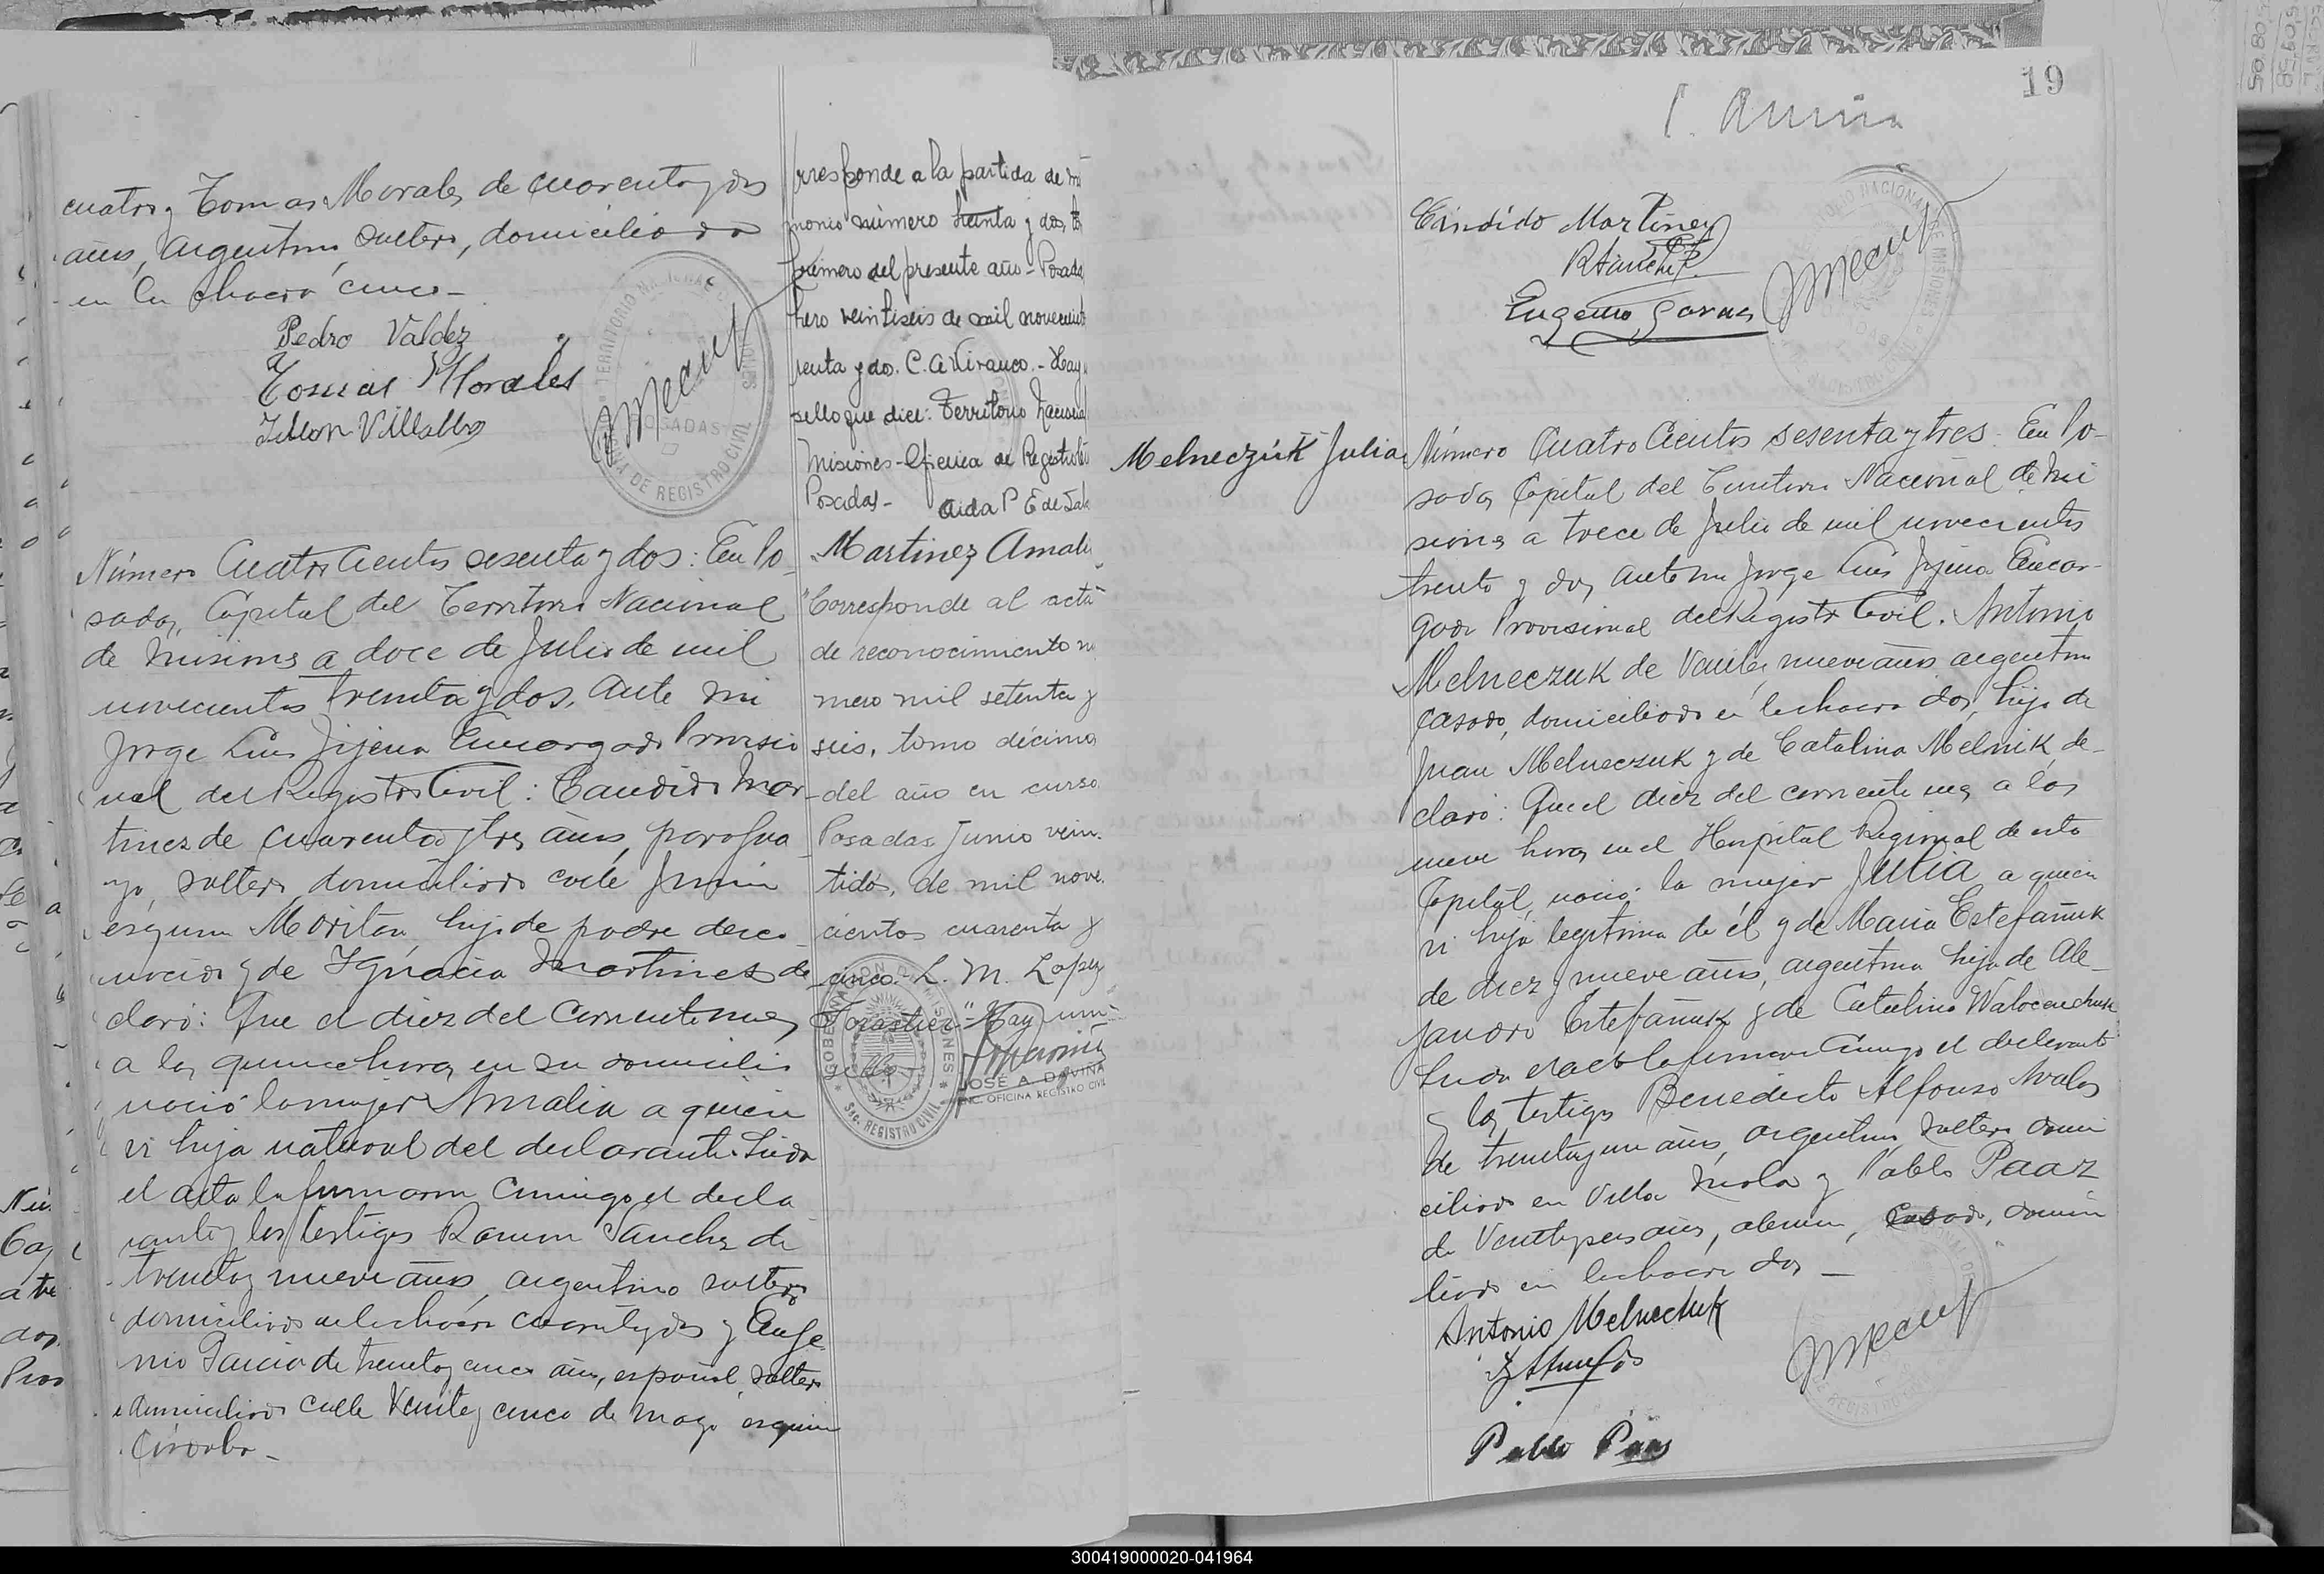 cuatro y Tomas Morales de cuarenta y dos
años, argentino, soltero, domiciliado
en la chacra cinco —
Pedro Valdez
Tomas Morales
Villalba
TERRITORIO NACIONAL DE MISIONES
POSADAS
OFICINA DE REGISTRO CIVIL
Número Cuatro cientos sesenta y dos: En Po-
sadas, Capital del Territorio Nacional
de Misiones a doce de Julio de mil
novecientos treinta y dos, ante mi
Jorge Luis Jijena Encargado Provisio
nal del Registro Civil: Candido Mar-
tinez de cuarenta y tres años, paragua
yo, soltero domiciliado calle Junin
esquina Moritan, hijo de padre desco-
nocido y de Ignacia Martines de
claró: Que el diez del corriente mes,
a las quince horas en su domicilio
nació la mujer Amalia a quien
vi hija natural del declarante. Leida
el acta la firmaron conmigo el decla
rante y los testigos Ramon Sanchez de
treinta y nueve años, argentino soltero
domiciliado en la chacra cuarenta y dos y Euge
nio Garcia de treinta y cinco años, español, soltero
domiciliado calle Veinte y cinco de Mayo esquina
Córdoba —
rresponde a la partida de m
monio número treinta y dos, to
primero del presente año - Posada
nero veintiseis de mil noveciento
renta y dos. C. A. Viranco. - Hay u
sello que dice: Territorio Naciona
Misiones - Oficina de Registro
Posadas - Aida P E de
Martinez Amali
"Corresponde al acta
de reconocimiento nú
mero mil setenta y
seis, tomo décimo
del año en curso
Posadas Junio vein-
tidós, de mil nove-
cientos cuarenta y
cinco. L. M. Lopez
Forastier - "Hay un
sello
GOBERNACION DE MISIONES
Sec. REGISTRO CIVIL
JOSÉ A. DAVIÑA
ENC. OFICINA REGISTRO CIVIL
19
Cándido Martinez
RSanchez
Eugenio Garcia
Melneczúk Julia
Número Cuatro Cientos sesenta y tres. En Po-
sadas, Capital del Territorio Nacional de Mi
siones a trece de Julio de mil novecientos
treinta y dos, ante mi Jorge Luis Jijena Encar-
gado Provisional del Registro Civil. Antonio
Melneczuk de veinte y nueve años argentino
casado, domiciliado en la chacra dos, hijo de
Juan Melneczuk y de Catalina Melnik, de-
claró: Que el diez del corriente mes a las
nueve horas en el Hospital Regional de esta
Capital, nació la mujer Julia a quien
vi hija legítima de él y de Maria Estefañuk
de diez y nueve años, argentina hija de Ale-
jandro Estefañuk y de Catalina
Leida el acta la firmaron conmigo el declarante
y los testigos Benedicto Alfonso Avalos
de treinta y un años, argentino soltero domi
ciliado en Villa Mola y Pablo Paaz
de Veinte y seis años, aleman, casado, domici
liado en la chacra dos —
Antonio Melneczuk
Pablo Paas
300419000020-041964